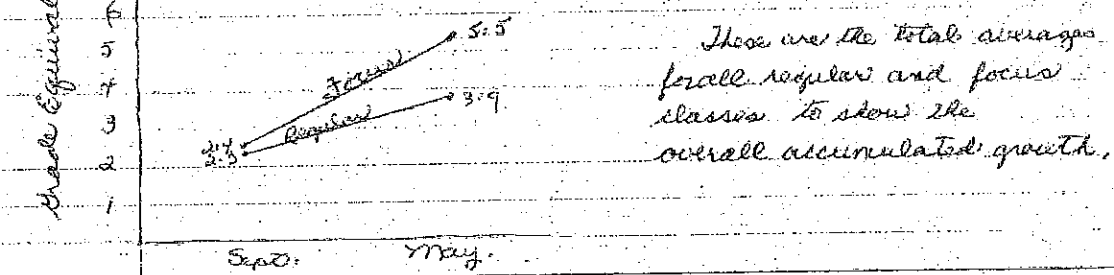 Grade Equival
6
5
4
3
2
1
5.5
Focus
3.9
Regular
2.4
2.3
Sept. May.
These are the total averages
for all regular and focus
classes to show the
overall accumulated growth.